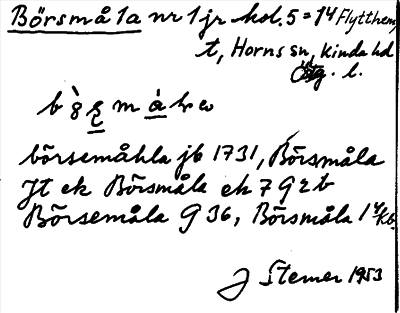 Börsmåla nr 1 jr kol. 5 = 14 Flytthem,
t, Horns sn, Kinda hd
Östg. l.
börsemåhla jb 1731, Börsmåla
Jt ek Börsmåla ek 79 &b
Börsemåla G 36, Börsmåla 14/Kb.
J Stemer 1953